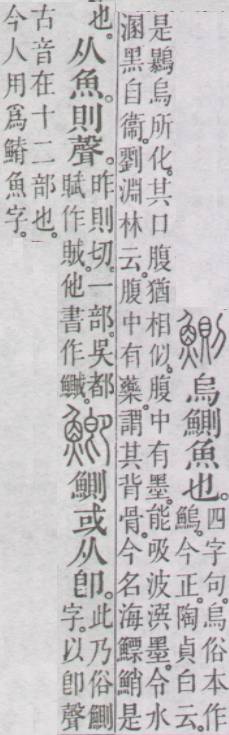 鰂 烏鰂魚也。四字句。烏俗本作
鰞。今正。陶貞白云。
是鸔烏所化。其口腹猶相似。腹中有墨。能吸波潠墨。令水
溷黑自衞。劉淵林云。腹中有藥。謂其背骨。今名海鰾鮹是
也。从魚。則聲。昨則切。一部。吳都
賦作賊。他書作鱡。
鯽 鰂或从卽。此乃俗鰂
字。以卽聲
古音在十二部也。
今人用爲鰿魚字。